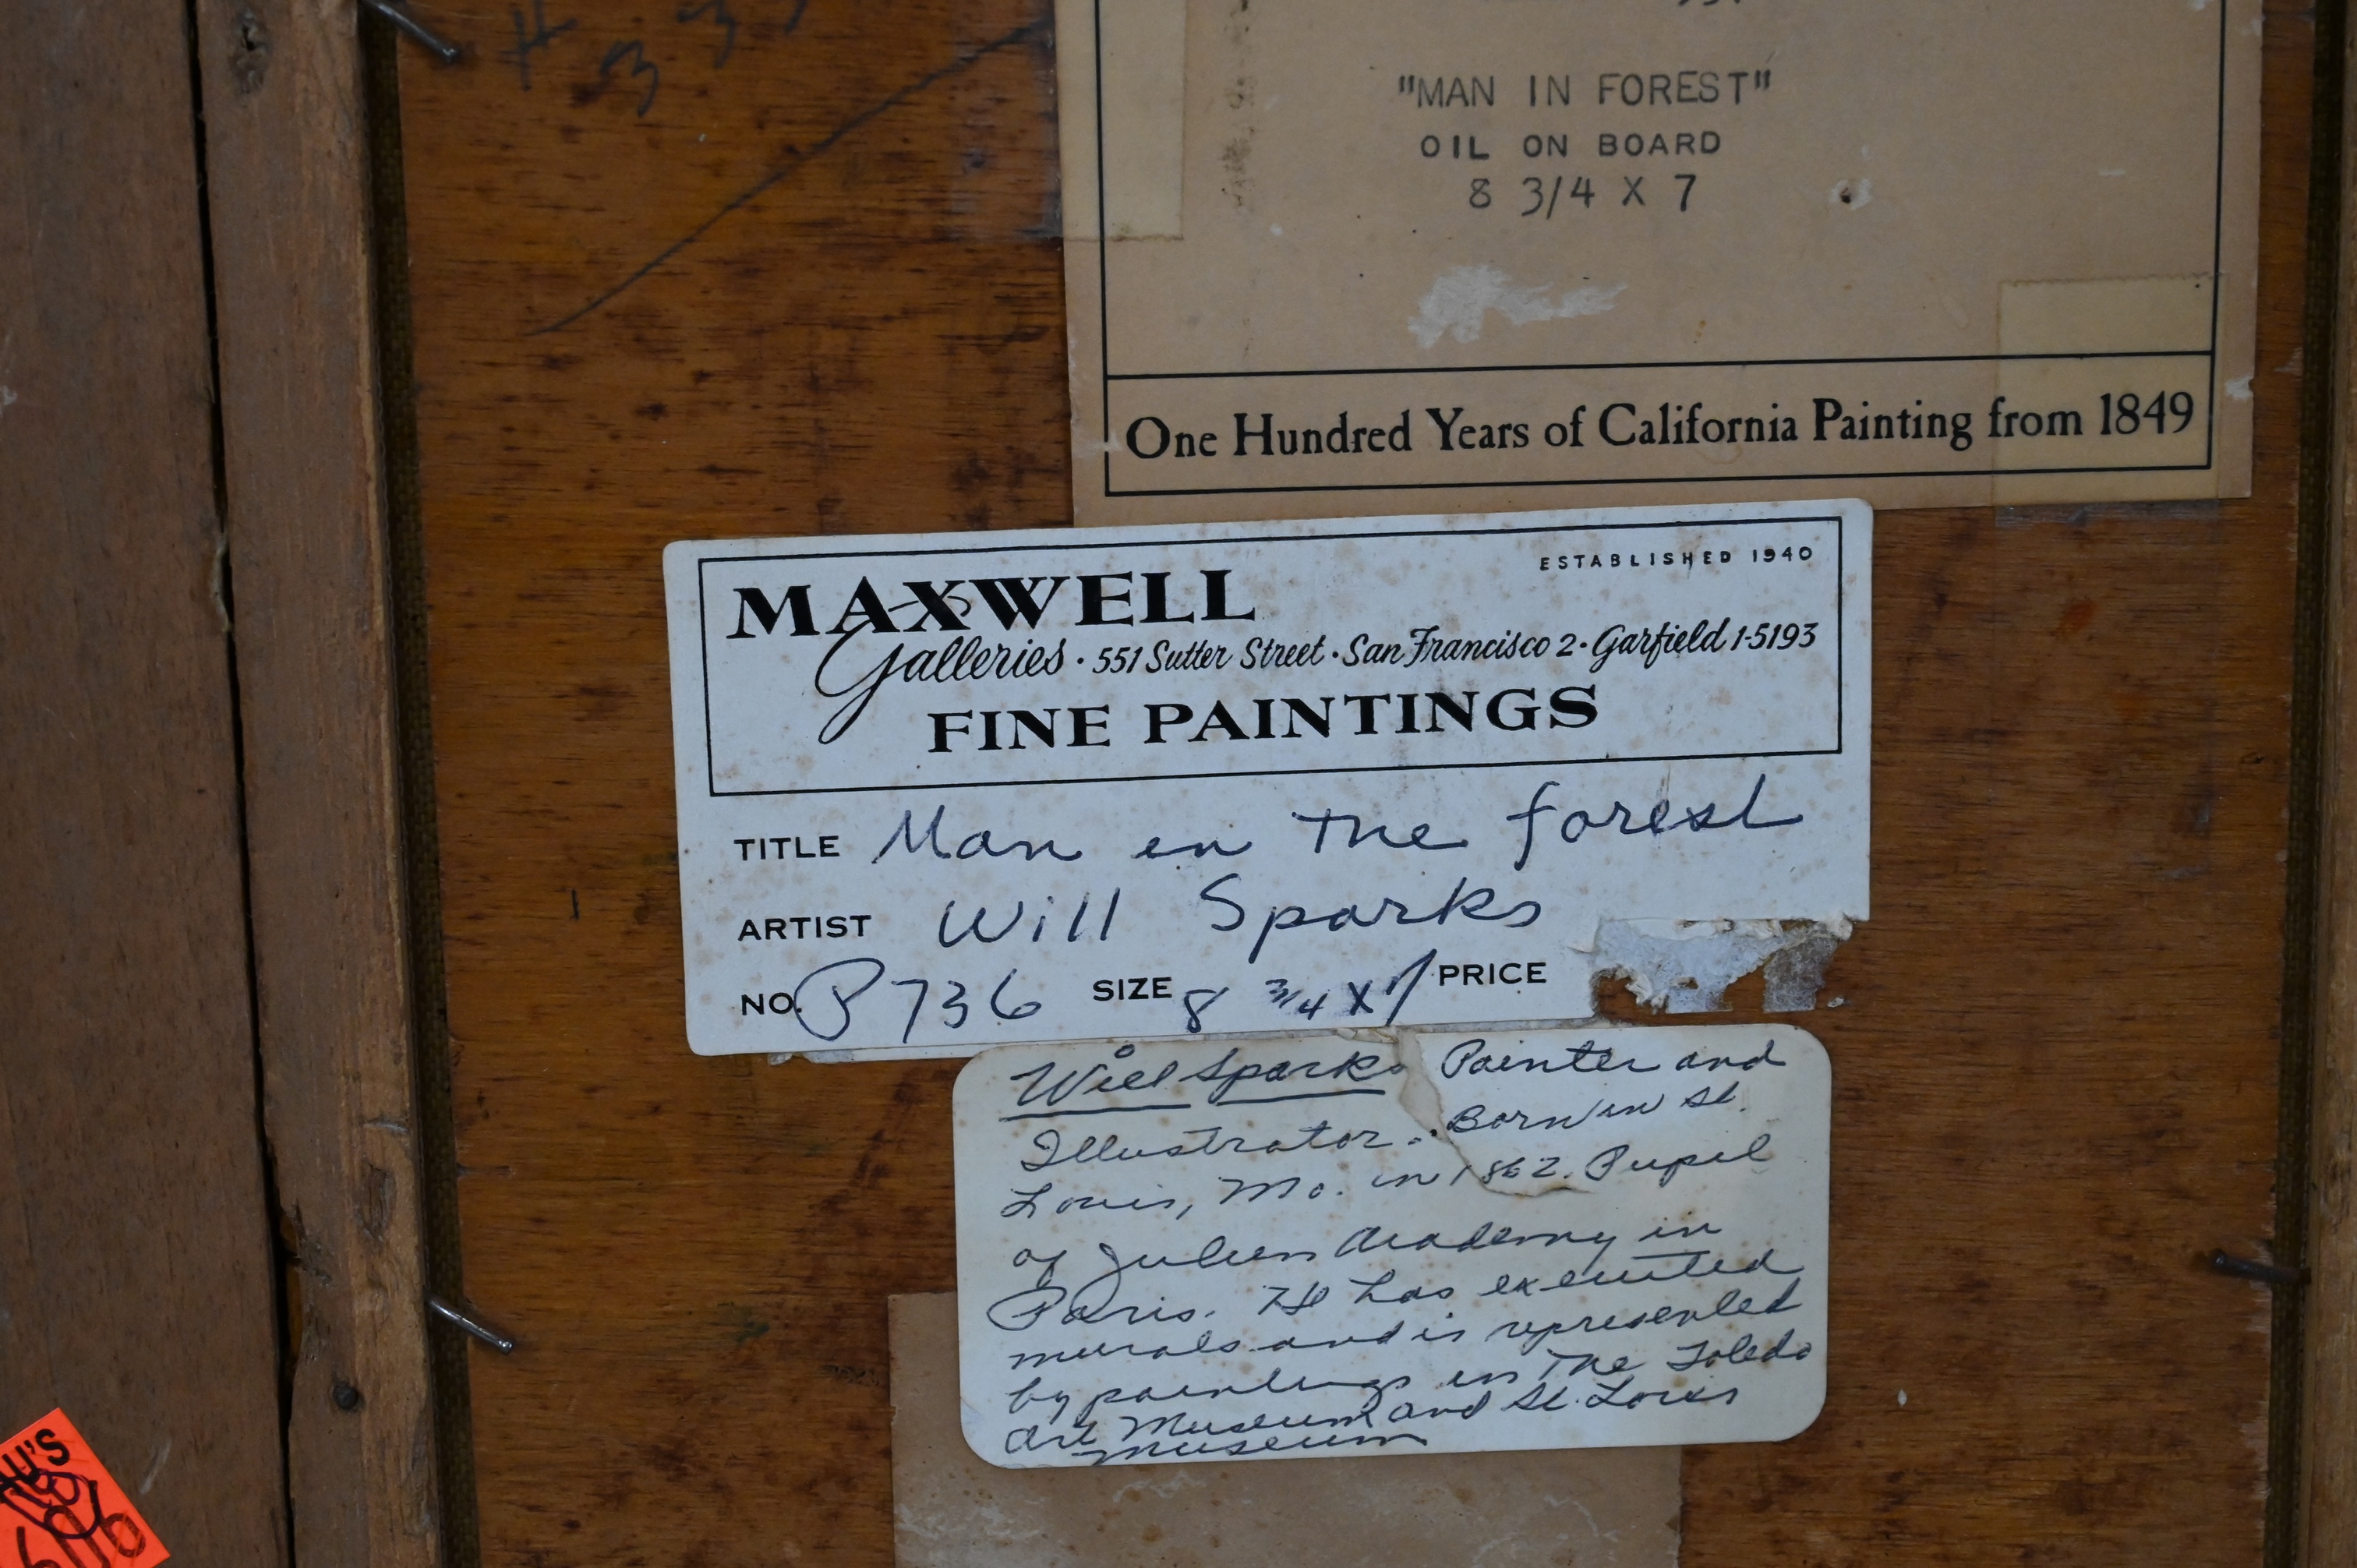 # 33
"MAN IN FOREST"
OIL ON BOARD
8 3/4 X 7
One Hundred Years of California Painting from 1849
ESTABLISHED 1940
MAXWELL
Galleries · 551 Sutter Street · San Francisco 2 · Garfield 1-5193
FINE PAINTINGS
TITLE Man in the forest
ARTIST Will Sparks
NO. P736 SIZE 8 3/4 X 7 PRICE
Will Sparks Painter and
Illustrator. Born in St.
Louis, Mo. in 1862. Pupil
of Julien Academy in
Paris. He has executed
murals and is represented
by paintings in The Toledo
Art Museum and St. Louis
Museum
U'S